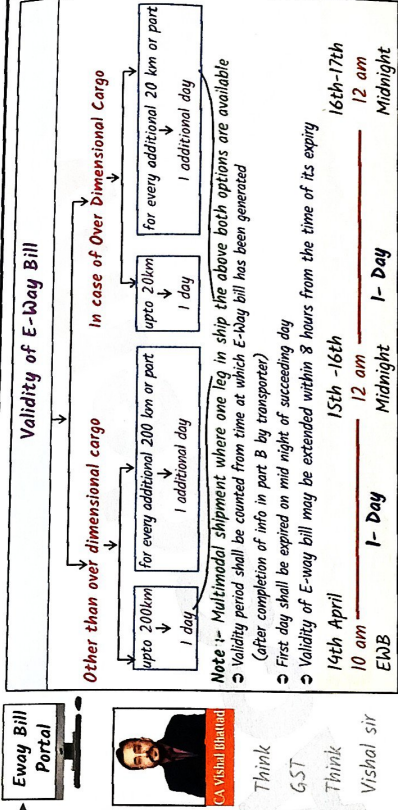 Eway Bill
Portal
CA Vishal Bhattad
Think
GST
Think
Vishal sir
Validity of E-Way Bill
Other than over dimensional cargo
In case of Over Dimensional Cargo
upto 200km
1 day
for every additional 200 km or part
1 additional day
upto 20km
1 day
for every additional 20 km or part
1 additional day
Note :- Multimodal shipment where one leg in ship the above both options are available
Validity period shall be counted from time at which E-Way bill has been generated
(after completion of info in part B by transporter)
First day shall be expired on mid night of succeeding day
Validity of E-way bill may be extended within 8 hours from the time of its expiry
14th April 15th -16th 16th-17th
10 am 12 am 12 am
EWB 1- Day Midnight 1- Day Midnight